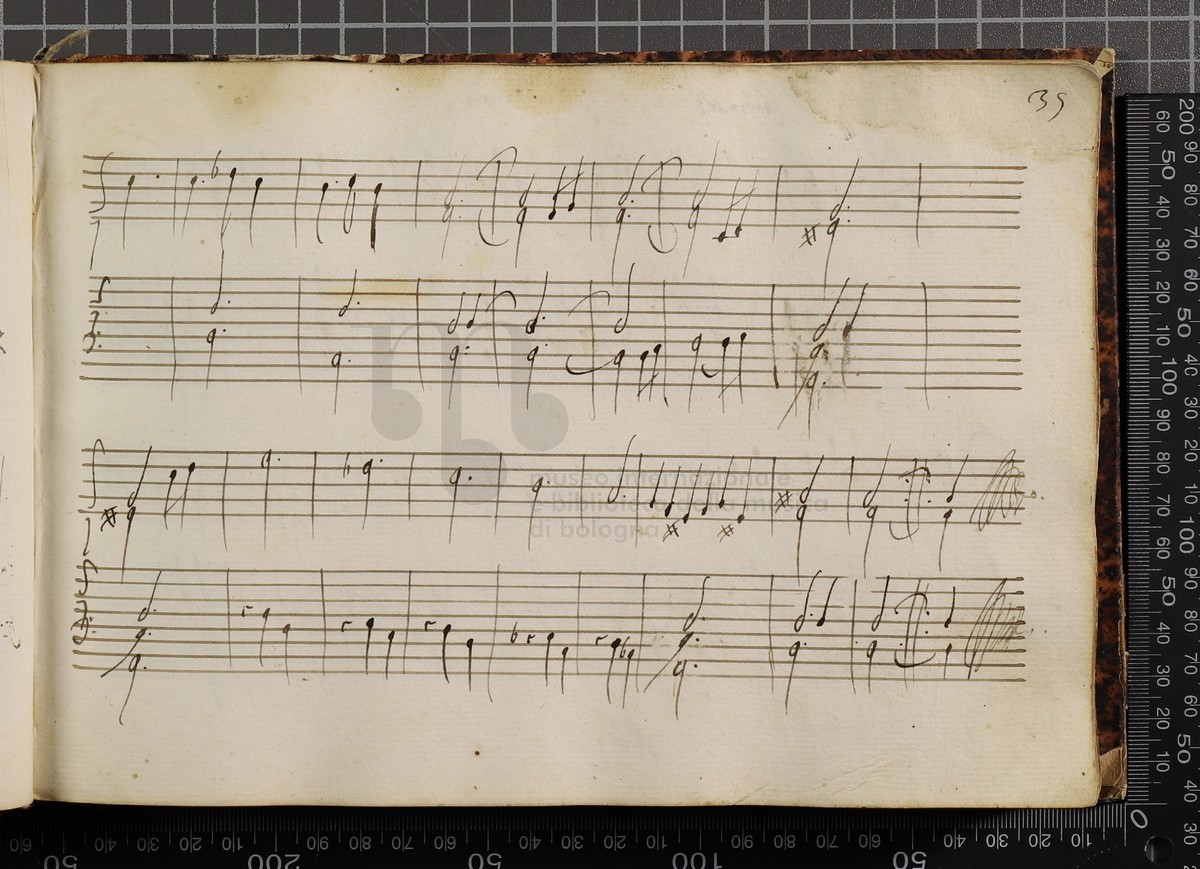 39
museo internazionale
e biblioteca della musica
di bologna